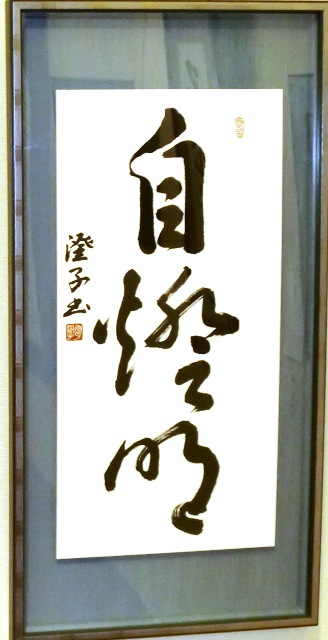 自燈明
澄子書